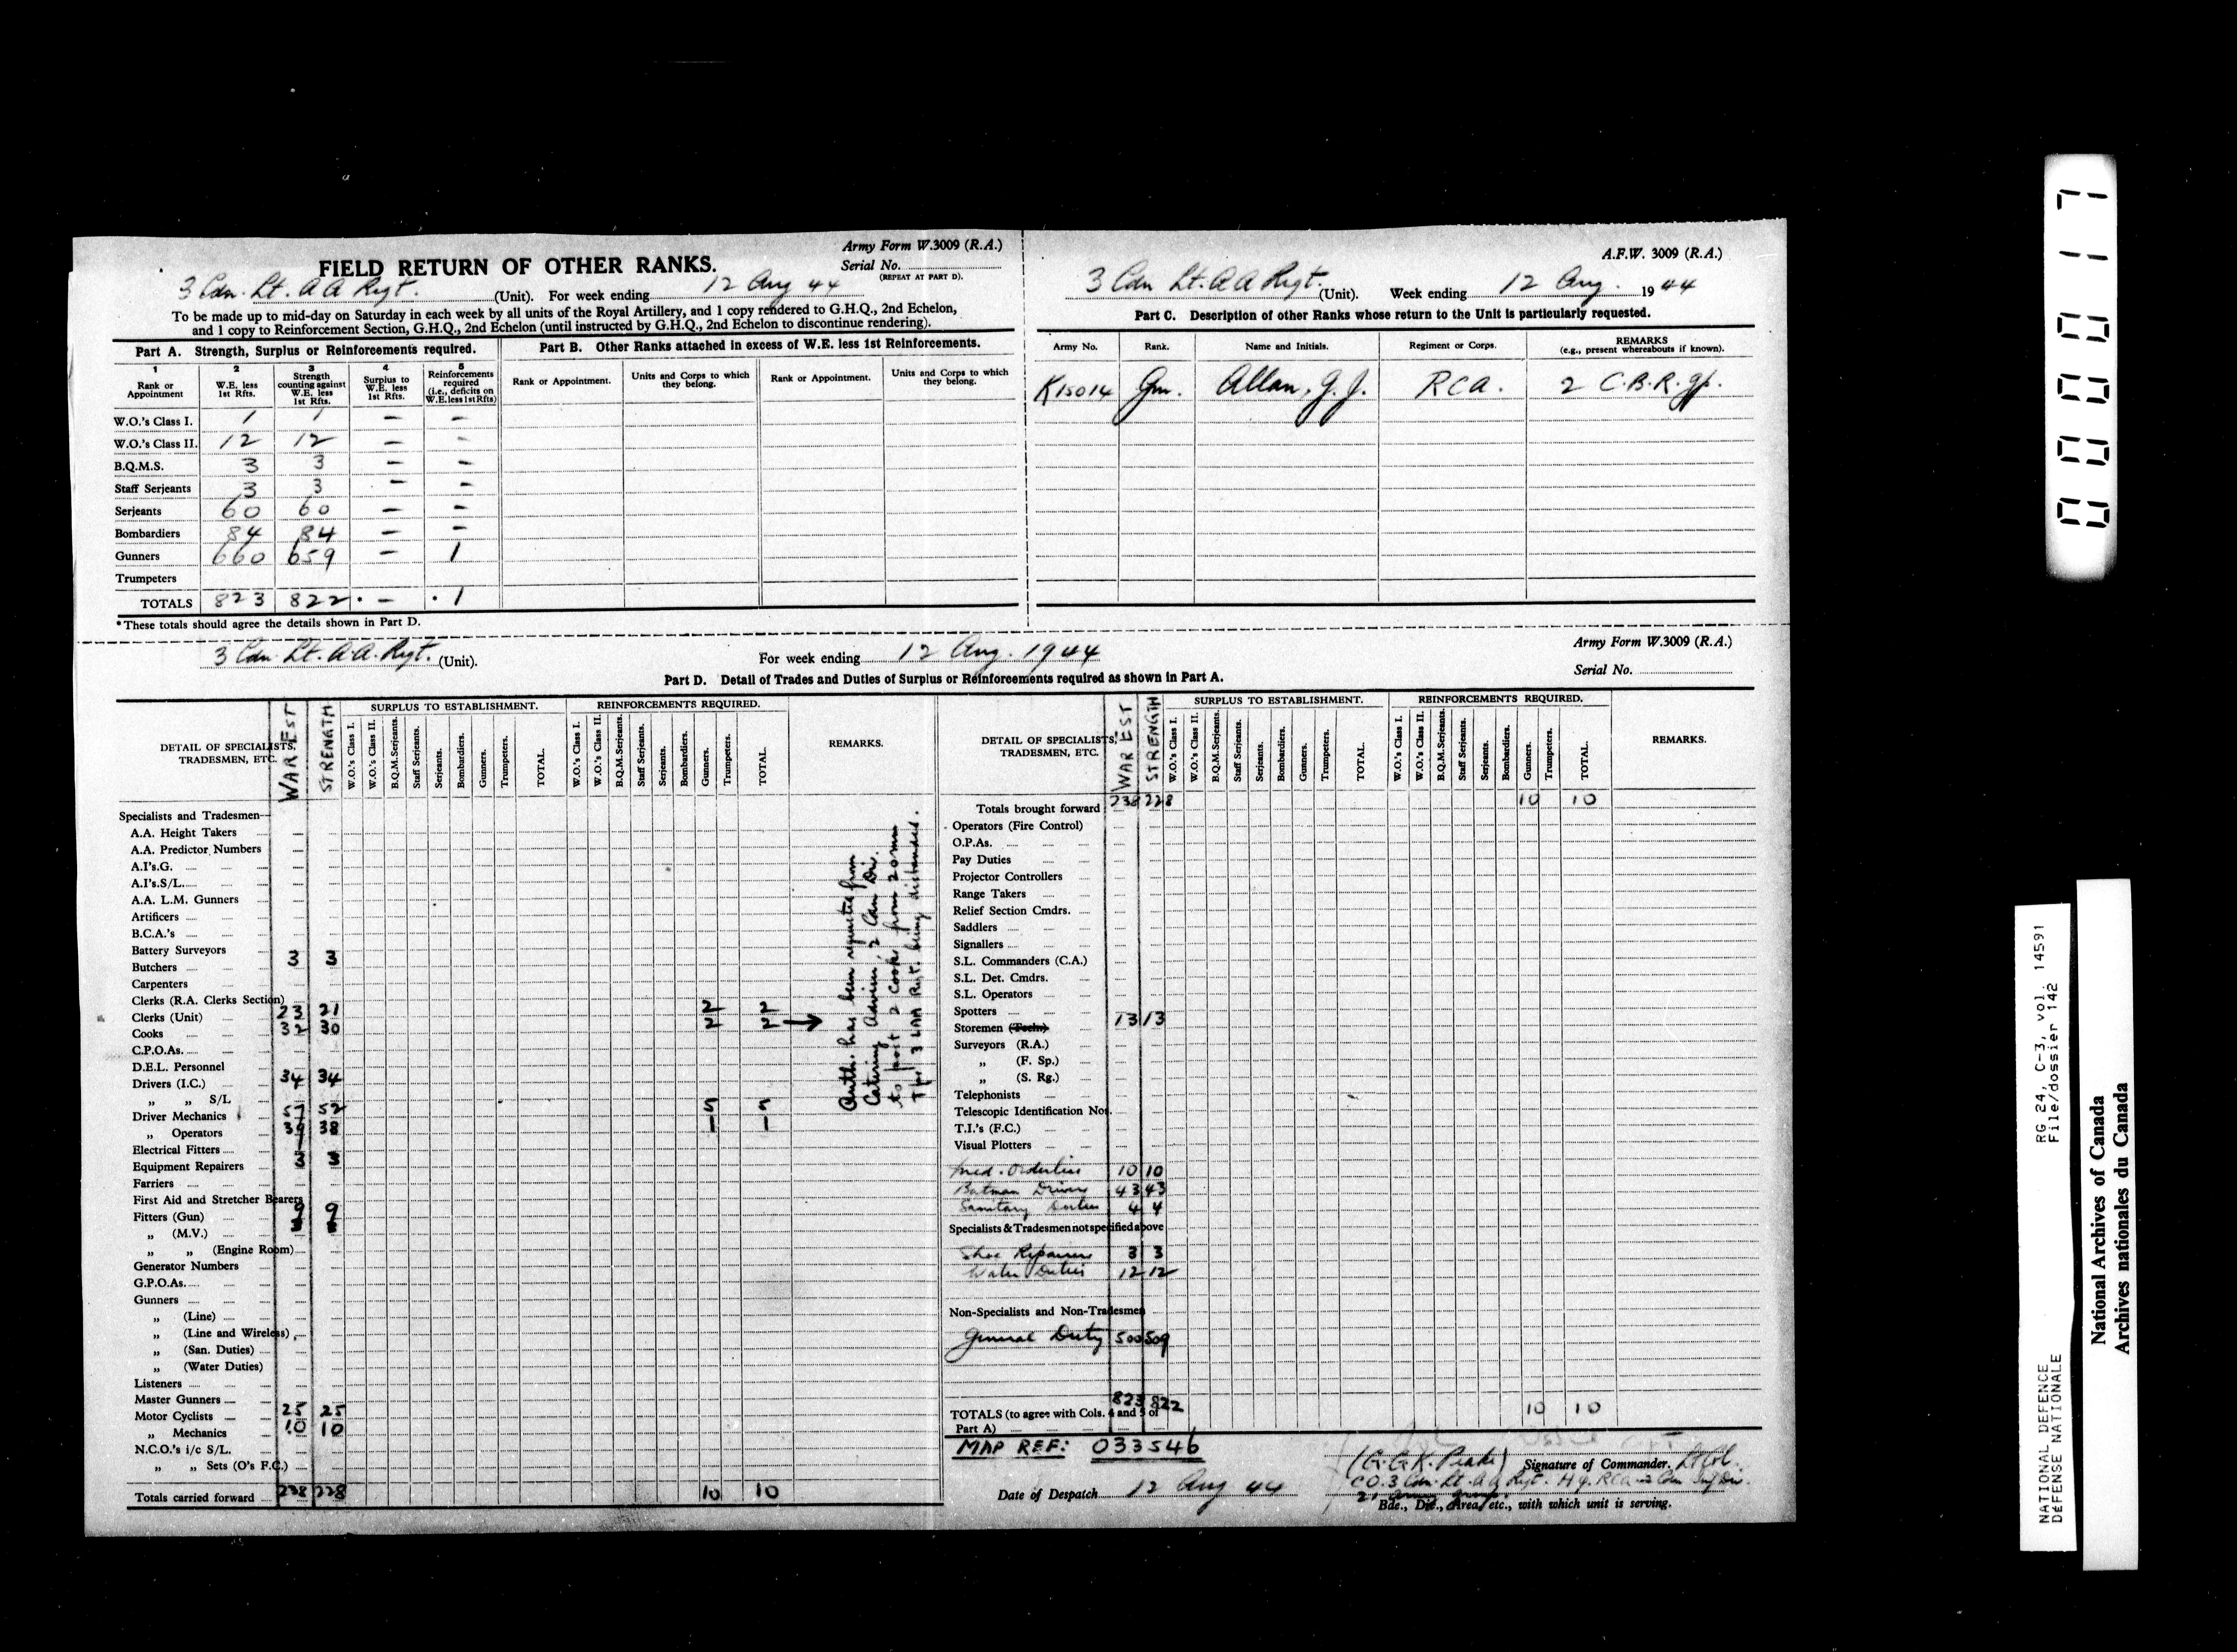 Army Form W.3009 (R.A.)
FIELD RETURN OF OTHER RANKS.
Serial No.
(REPEAT AT PART D).
3 Cdn. Lt. A A Regt. (Unit). For week ending 12 Aug 44
To be made up to mid-day on Saturday in each week by all units of the Royal Artillery, and 1 copy rendered to G.H.Q., 2nd Echelon,
and 1 copy to Reinforcement Section, G.H.Q., 2nd Echelon (until instructed by G.H.Q., 2nd Echelon to discontinue rendering).
Part A. Strength, Surplus or Reinforcements required.
1 Rank or Appointment
2 W.E. less 1st Rfts.
3 Strength counting against W.E. less 1st Rfts.
4 Surplus to W.E. less 1st Rfts.
5 Reinforcements required (i.e., deficits on W.E. less 1st Rfts)
W.O.'s Class I. 1 1 - -
W.O.'s Class II. 12 12 - -
B.Q.M.S. 3 3 - -
Staff Serjeants 3 3 - -
Serjeants 60 60 - -
Bombardiers 84 84 - -
Gunners 660 659 - 1
Trumpeters
TOTALS 823 822 - 1
*These totals should agree the details shown in Part D.
Part B. Other Ranks attached in excess of W.E. less 1st Reinforcements.
Rank or Appointment.
Units and Corps to which they belong.
Rank or Appointment.
Units and Corps to which they belong.
A.F.W. 3009 (R.A.)
3 Cdn Lt. A A Regt. (Unit). Week ending 12 Aug. 1944
Part C. Description of other Ranks whose return to the Unit is particularly requested.
Army No. Rank. Name and Initials. Regiment or Corps. REMARKS
(e.g., present whereabouts if known).
K15014 Gnr. Allan, G. J. RCA. 2 C.B.R. gp.
Army Form W.3009 (R.A.)
3 Cdn. Lt. A.A. Regt. (Unit). For week ending 12 Aug. 1944
Serial No.
Part D. Detail of Trades and Duties of Surplus or Reinforcements required as shown in Part A.
DETAIL OF SPECIALISTS, TRADESMEN, ETC.
WAR EST
STRENGTH
SURPLUS TO ESTABLISHMENT.
W.O.'s Class I. W.O.'s Class II. B.Q.M.Serjeants. Staff Serjeants. Serjeants. Bombardiers. Gunners. Trumpeters. TOTAL.
REINFORCEMENTS REQUIRED.
W.O.'s Class I. W.O.'s Class II. B.Q.M.Serjeants. Staff Serjeants. Serjeants. Bombardiers. Gunners. Trumpeters. TOTAL.
REMARKS.
Specialists and Tradesmen—
A.A. Height Takers
A.A. Predictor Numbers
A.I's.G.
A.I's.S/L.
A.A. L.M. Gunners
Artificers
B.C.A.'s
Battery Surveyors
Butchers 3 3
Carpenters
Clerks (R.A. Clerks Section)
Clerks (Unit) 23 21 2 2
Cooks 32 30 2 2 →
C.P.O.As.
D.E.L. Personnel
Drivers (I.C.) 34 34
„ „ S/L
Driver Mechanics 57 52 5 5
„ Operators 39 38 1 1
Electrical Fitters
Equipment Repairers 3 3
Farriers
First Aid and Stretcher Bearers
Fitters (Gun) 9 9
„ (M.V.)
„ „ (Engine Room)
Generator Numbers
G.P.O.As.
Gunners
„ (Line)
„ (Line and Wireless)
„ (San. Duties)
„ (Water Duties)
Listeners
Master Gunners
Motor Cyclists 25 25
„ Mechanics 10 10
N.C.O.'s i/c S/L.
„ „ Sets (O's F.C.)
Totals carried forward 238 228 10 10
Auth. has been requested from
Catering Adviser, 2 Cdn Div.
to post 2 cooks from 20 mm
Tps 3 LAA Regt. being disbanded.
DETAIL OF SPECIALISTS, TRADESMEN, ETC.
WAR EST
STRENGTH
SURPLUS TO ESTABLISHMENT.
W.O.'s Class I. W.O.'s Class II. B.Q.M.Serjeants. Staff Serjeants. Serjeants. Bombardiers. Gunners. Trumpeters. TOTAL.
REINFORCEMENTS REQUIRED.
W.O.'s Class I. W.O.'s Class II. B.Q.M.Serjeants. Staff Serjeants. Serjeants. Bombardiers. Gunners. Trumpeters. TOTAL.
REMARKS.
Totals brought forward 238 228 10 10
Operators (Fire Control)
O.P.As.
Pay Duties
Projector Controllers
Range Takers
Relief Section Cmdrs.
Saddlers
Signallers
S.L. Commanders (C.A.)
S.L. Det. Cmdrs.
S.L. Operators
Spotters
Storemen (Techn) 13 13
Surveyors (R.A.)
„ (F. Sp.)
„ (S. Rg.)
Telephonists
Telescopic Identification Nos.
T.I.'s (F.C.)
Visual Plotters
Med. Orderlies 10 10
Batman Drivers 43 43
Sanitary Duties 4 4
Specialists & Tradesmen not specified above
Shoe Repairers 3 3
Water Duties 12 12
Non-Specialists and Non-Tradesmen
General Duty 500 509
823 822
TOTALS (to agree with Cols. 4 and 5 of Part A) 10 10
MAP REF: 033546
(G.G.K. Peake) Signature of Commander. Lt Col.
CO. 3 Cdn. Lt. A A Regt. HQ. RCA 2 Cdn Inf Div.
Date of Despatch 12 Aug 44
Bde., Div., Area, etc., with which unit is serving.
00000117
RG 24, C-3, vol. 14591
File/dossier 142
NATIONAL DEFENCE
DÉFENSE NATIONALE
National Archives of Canada
Archives nationales du Canada